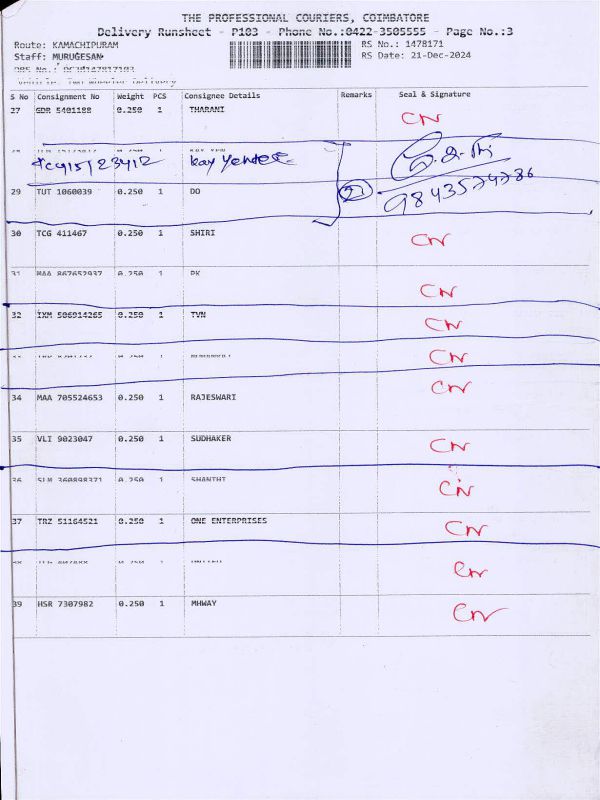 THE PROFESSIONAL COURIERS, COIMBATORE
Delivery Runsheet - P103 - Phone No.:0422-3505555 - Page No.:3
Route: KAMACHIPURAM RS No.: 1478171
Staff: MURUGESAN RS Date: 21-Dec-2024
S No Consignment No Weight PCS Consignee Details Remarks Seal & Signature
27 GDR 5401188 0.250 1 THARANI CN
9843574786
29 TUT 1060039 0.250 1 DO
30 TCG 411467 0.250 1 SHIRI CN
31 MAA 867652937 0.250 1 PK CN
32 IXM 506914265 0.250 1 TVN CN
CN
34 MAA 705524653 0.250 1 RAJESWARI CN
35 VLI 9023047 0.250 1 SUDHAKER CN
36 SLM 360898371 0.250 1 SHANTHI CN
37 TRZ 51164521 0.250 1 ONE ENTERPRISES CN
CN
39 HSR 7307982 0.250 1 MHWAY CN